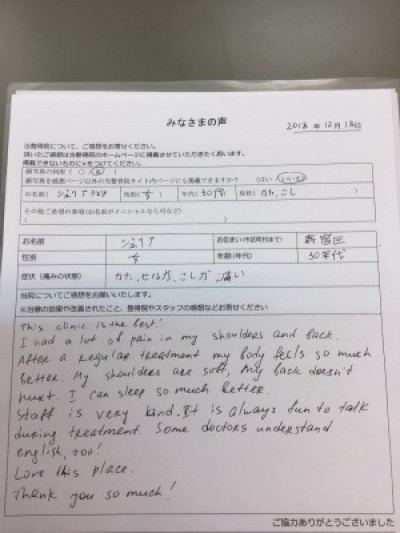 みなさまの声
2018年12月18日
当整骨院について、ご感想をお寄せください。
頂いたご感想は当整骨院のホームページに掲載させていただきたく存じます。
掲載できないものに×をつけてください。
お名前( ジュリア ) 性別( 女 ) 年代( 30代 ) 症状( かた、こし )
その他ご希望の事項(お名前がイニシャルなら可など)
お名前 ジュリア お住まい(市区町村まで) 新宿区
性別 女 年齢(年代) 30年代
症状(痛みの状態) かた、せなか、こしが痛い
当院についてご感想をお願いいたします。
※治療の効果や改善されたこと、整骨院やスタッフの感想などお寄せください
This clinic is the best!
I had a lot of pain in my shoulders and back.
After a regular treatment my body feels so much
better. My shoulders are soft, my back doesn't
hurt. I can sleep so much better.
Staff is very kind. It is always fun to talk
during treatment. Some doctors understand
english, too!
Love this place.
Thank you so much!
ご協力ありがとうございました